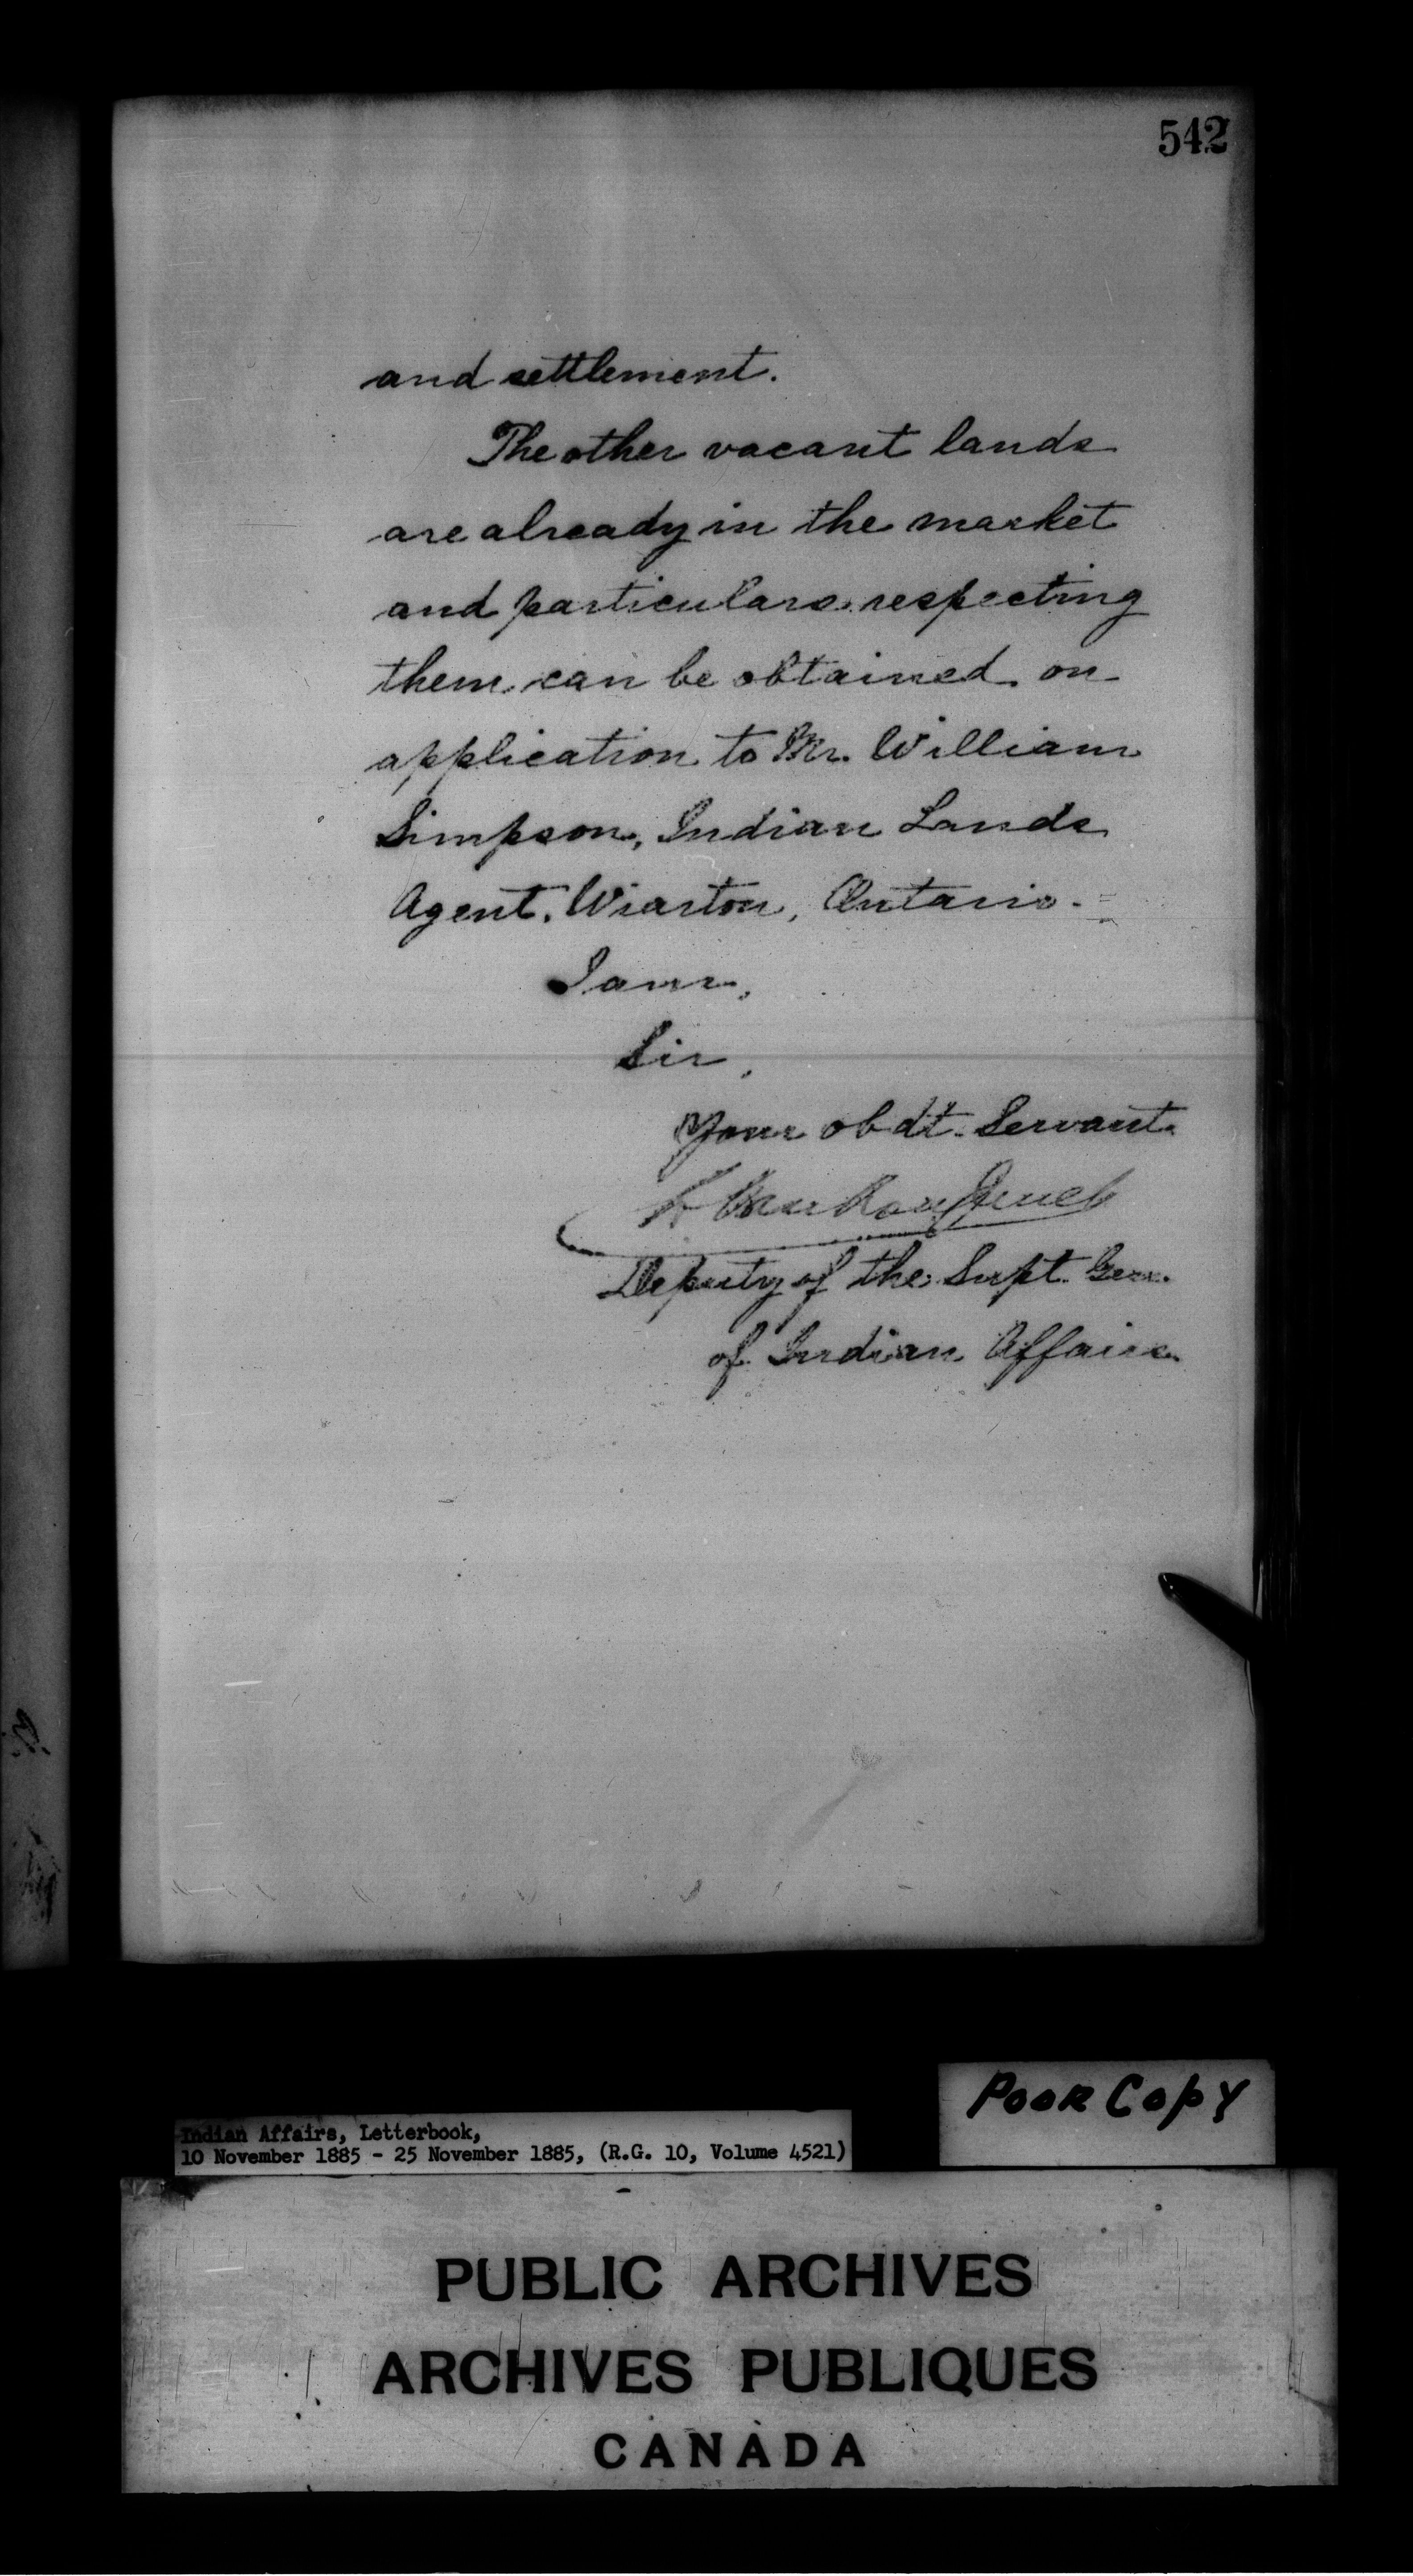 542
and settlement.
The other vacant lands
are already in the market
and particulars respecting
them can be obtained on
application to Mr. William
Simpson, Indian Lands
Agent, Wiarton, Ontario.
I am,
Sir,
Your obdt. Servant.
Deputy of the Supt. Gen.
of Indian Affairs.
Poor Copy
Indian Affairs, Letterbook,
10 November 1885 - 25 November 1885, (R.G. 10, Volume 4521)
PUBLIC ARCHIVES
ARCHIVES PUBLIQUES
CANADA